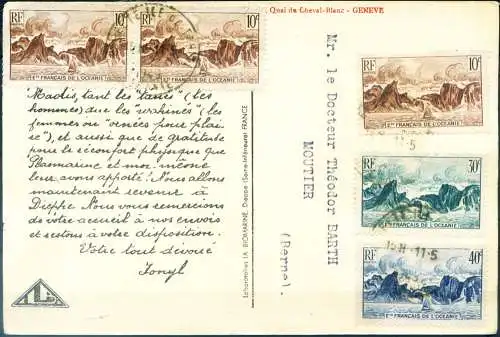 Quai du Cheval-Blanc - GENEVE
RF 10c
Ets FRANÇAIS DE L'OCÉANIE
RF 10c
Ets FRANÇAIS DE L'OCÉANIE
"Madis, tant les "tanés" (les
hommes) que les "wahinés" (les
femmes ou "venées pour plai-
se"), et aussi que de gratitude
pour le réconfort physique que
Plasmarine et moi-même
leur avons apporté! Nous allons
maintenant revenir à
Dieppe. Nous vous remercions
de votre accueil à nos envois
et restons à votre disposition.
Votre tout dévoué
Ionyl
Laboratoires LA BIOMARINE, Dieppe (Seine-Inférieure) FRANCE
Mr. le Docteur Théodor BARTH
MOUTIER
(Berne).
RF 10c
Ets FRANÇAIS DE L'OCÉANIE
RF 30c
Ets FRANÇAIS DE L'OCÉANIE
15H-11-5
RF 40c
Ets FRANÇAIS DE L'OCÉANIE